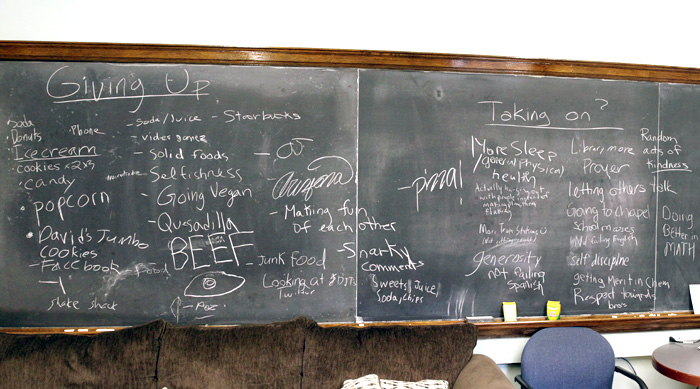 Giving Up
Soda
Donuts
Phone
Icecream
cookies x2x3
candy
popcorn
David's Jumbo
cookies
Facebook
food
shake shack
soda/Juice
Starbucks
video games
Solid foods
Selfishness
Going Vegan
Quesadilla
BEEF
Making fun
of each other
Junk food
Snarky
comments
Looking at
Twitter
Sweets, Juice,
Soda, chips
Taking on?
More Sleep
(general physical)
health
Actually hanging out
with people instead of
making plans then
generosity
Not failing
Spanish
Library more
Prayer
letting others talk
Going to chapel
School masses
Not failing English
self discipline
getting Merit in Chem
Respect towards
bros
Random
acts of
kindness
Doing
Better in
MATH